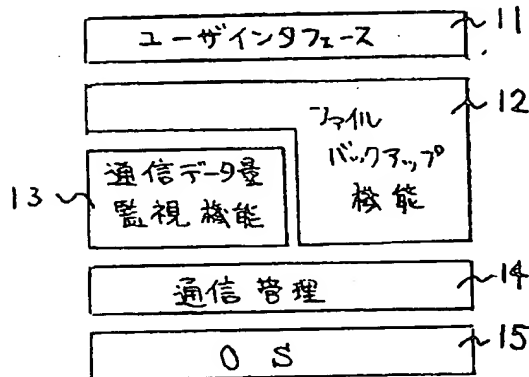 ユーザインタフェース
11
12
ファイル
バックアップ
機能
13
通信データ量
監視機能
通信管理
14
OS
15